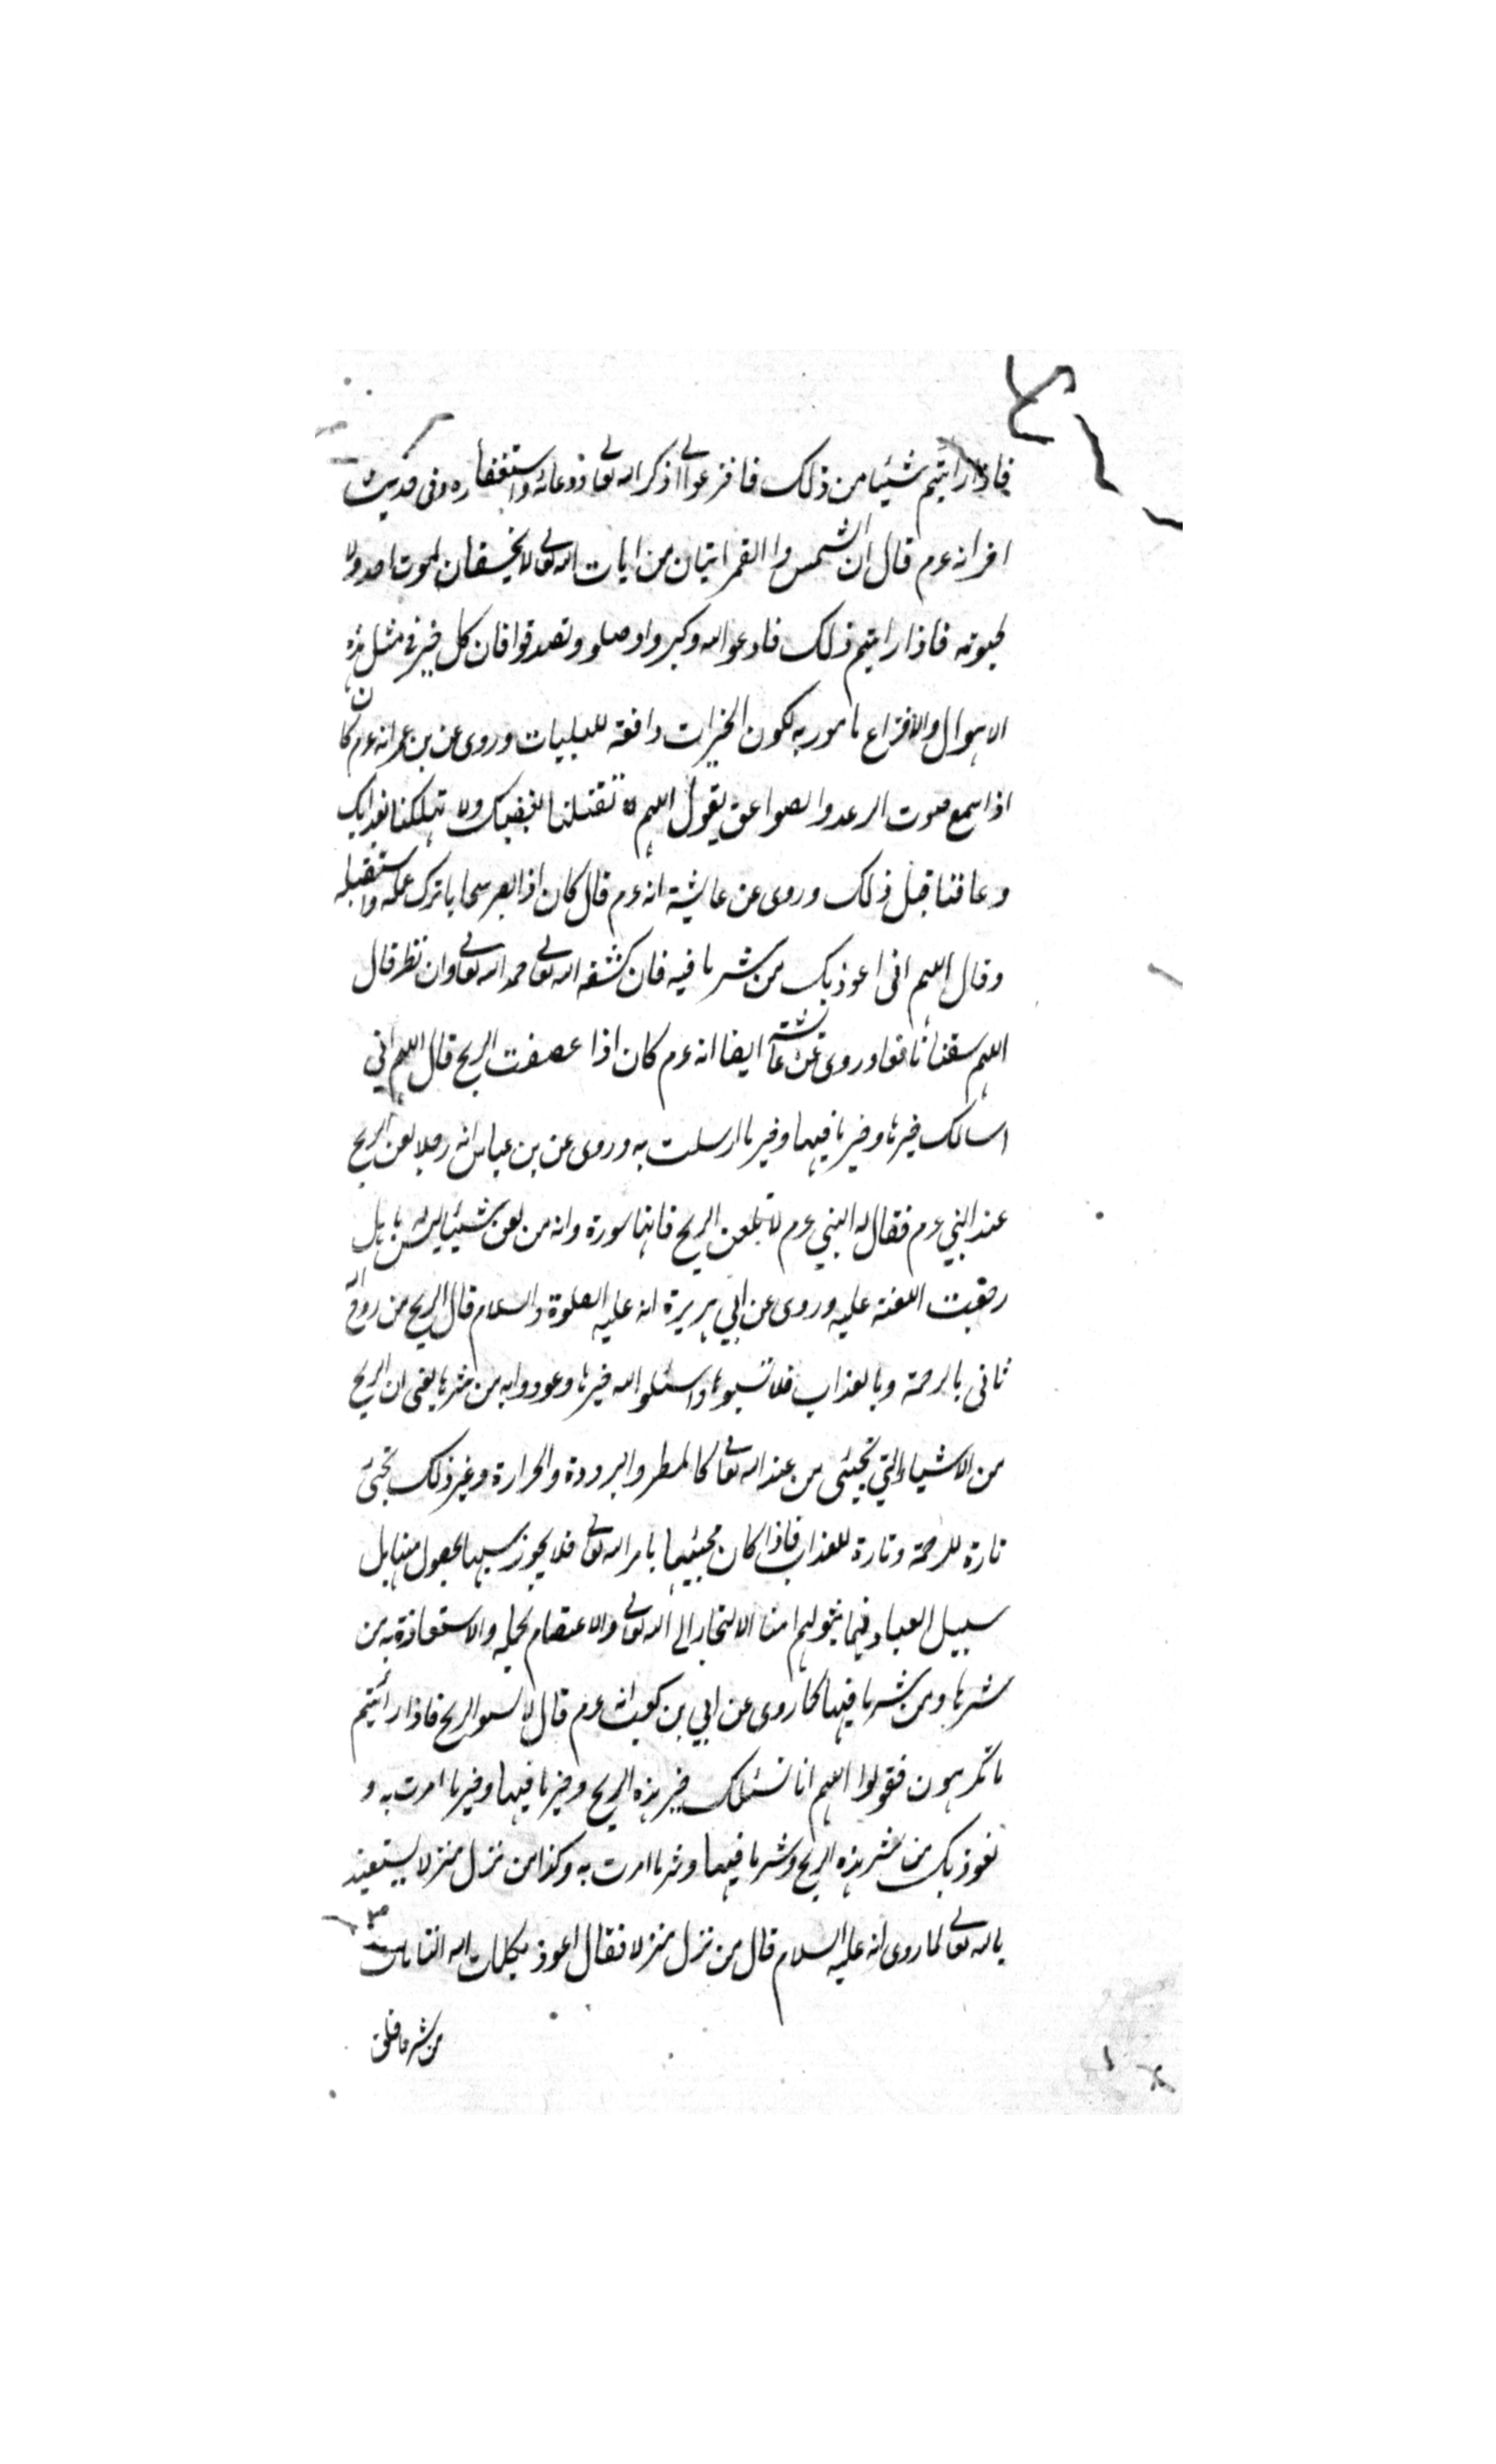 فاذا رايتم شيئا من ذلك فافزعوا الى ذكر الله تعالى ودعائه واستغفاره وفى حديث
اخر انه عم قال ان الشمس والقمر ايتان من ايات الله تعالى لا يخسفان لموت احد ولا
لحيوته فاذا رايتم ذلك فادعوا الله وكبروا وصلو وتصدقوا فان كل خير فى مثل هذه
الاهوال والافزاع مامور به لكون الخيرات دافعة للبليات وروى عن بن عمر انه عم كان
اذا سمع صوت الرعد والصواعق يقول اللهم لا تقتلنا بغضبك ولا تهلكنا بعذابك
وعافنا قبل ذلك وروى عن عايشة انه عم قال كان اذا ابصر سحابا ترك عمله واستقبله
وقال اللهم انى اعوذ بك من شر ما فيه فان كشفه الله تعالى حمد الله تعالى وان نظر قال
اللهم سقنا نافعا وروى عن عائشة ايضا انه عم كان اذا عصفت الريح قال اللهم انى
اسالك خيرها وخير ما فيها وخير ما ارسلت به وروى عن بن عباس انه رجلا لعن الريح
عند النبي عم فقال له النبي عم لا تلعن الريح فانها مورة وانه من لعن شيئا ليس له باهل
رجعت اللعنة عليه وروى عن ابي هريرة انه عليه الصلوة والسلام قال الريح من روح الله
تاتى بالرحمة وبالعذاب فلا تسبوها واسئلوا الله خيرها وعودوا به من شرها يعنى ان الريح
من الاشياء التي تجيئى من عند الله تعالى كالمطر والبرودة والحرارة وغير ذلك تجئ
تارة للرحمة وتارة للعذاب فاذا كان مجيئها بامر الله تعالى فلا يجوز سبها بل
سبيل العباد فيما الالتجا الى الله تعالى والاعتصام بحبله والاستعاذة به من
شرها ومن شر ما فيها كما روى عن ابي بن كعب انه عم قال لا تسبوا الريح فاذا رائيتم
ما تكرهون فقولوا اللهم انا نسئلك خير هذه الريح وخير ما فيها وخير ما امرت به و
نعوذ بك من شر هذه الريح وشر ما فيها وشر ما امرت به وكذا من نزل منزلا يستعيذ
بالله تعالى لما روى انه عليه السلام قال من نزل منزلا فقال اعوذ بكلمات الله التامات
من شر ما خلق